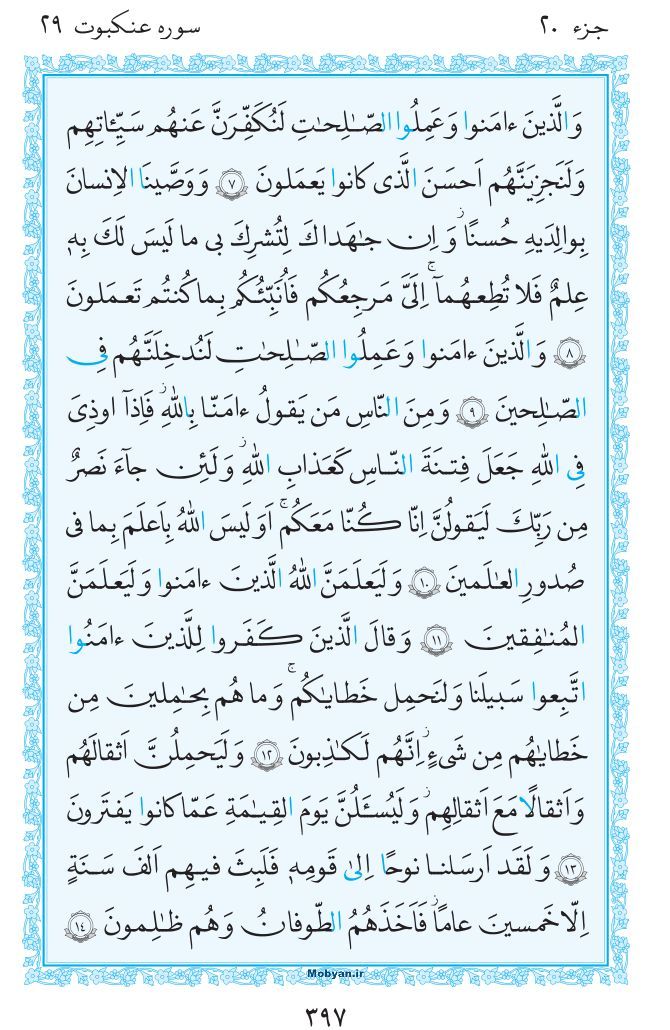 جزء ۲۰
سوره عنکبوت ۲۹
وَالَّذينَ ءامَنوا وَعَمِلُوا الصّـٰلِحـٰتِ لَنُكَفِّرَنَّ عَنهُم سَيِّـٔاتِهِم
وَلَنَجزِيَنَّهُم اَحسَنَ الَّذى كانوا يَعمَلونَ ۷ وَوَصَّينَا الاِنسانَ
بِوالِدَيهِ حُسنًا ۖ وَاِن جـٰهَداكَ لِتُشرِكَ بى ما لَيسَ لَكَ بِهٖ
عِلمٌ فَلا تُطِعهُمآ ۚ اِلَىَّ مَرجِعُكُم فَاُنَبِّئُكُم بِما كُنتُم تَعمَلونَ
۸ وَالَّذينَ ءامَنوا وَعَمِلُوا الصّـٰلِحـٰتِ لَنُدخِلَنَّهُم فِى
الصّـٰلِحينَ ۹ وَمِنَ النّاسِ مَن يَقولُ ءامَنّا بِاللهِ ۖ فَاِذآ اوذِىَ
فِى اللهِ جَعَلَ فِتنَةَ النّاسِ كَعَذابِ اللهِ ۖ وَلَئِن جآءَ نَصرٌ
مِن رَبِّكَ لَيَقولُنَّ اِنّا كُنّا مَعَكُم ۚ اَوَلَيسَ اللهُ بِاَعلَمَ بِما فى
صُدورِ العـٰلَمينَ ۱۰ وَلَيَعلَمَنَّ اللهُ الَّذينَ ءامَنوا وَلَيَعلَمَنَّ
المُنـٰفِقينَ ۱۱ وَقالَ الَّذينَ كَفَروا لِلَّذينَ ءامَنُوا
اتَّبِعوا سَبيلَنا وَلنَحمِل خَطايـٰكُم ۚ وَما هُم بِحـٰمِلينَ مِن
خَطايـٰهُم مِن شَىءٍ ۖ اِنَّهُم لَكـٰذِبونَ ۱۲ وَلَيَحمِلُنَّ اَثقالَهُم
وَاَثقالًا مَعَ اَثقالِهِم ۖ وَلَيُسـَٔلُنَّ يَومَ القِيـٰمَةِ عَمّا كانوا يَفتَرونَ
۱۳ وَلَقَد اَرسَلنا نوحًا اِلىٰ قَومِهٖ فَلَبِثَ فيهِم اَلفَ سَنَةٍ
اِلّا خَمسينَ عامًا ۖ فَاَخَذَهُمُ الطّوفانُ وَهُم ظـٰلِمونَ ۱٤
Mobyan.ir
۳۹۷